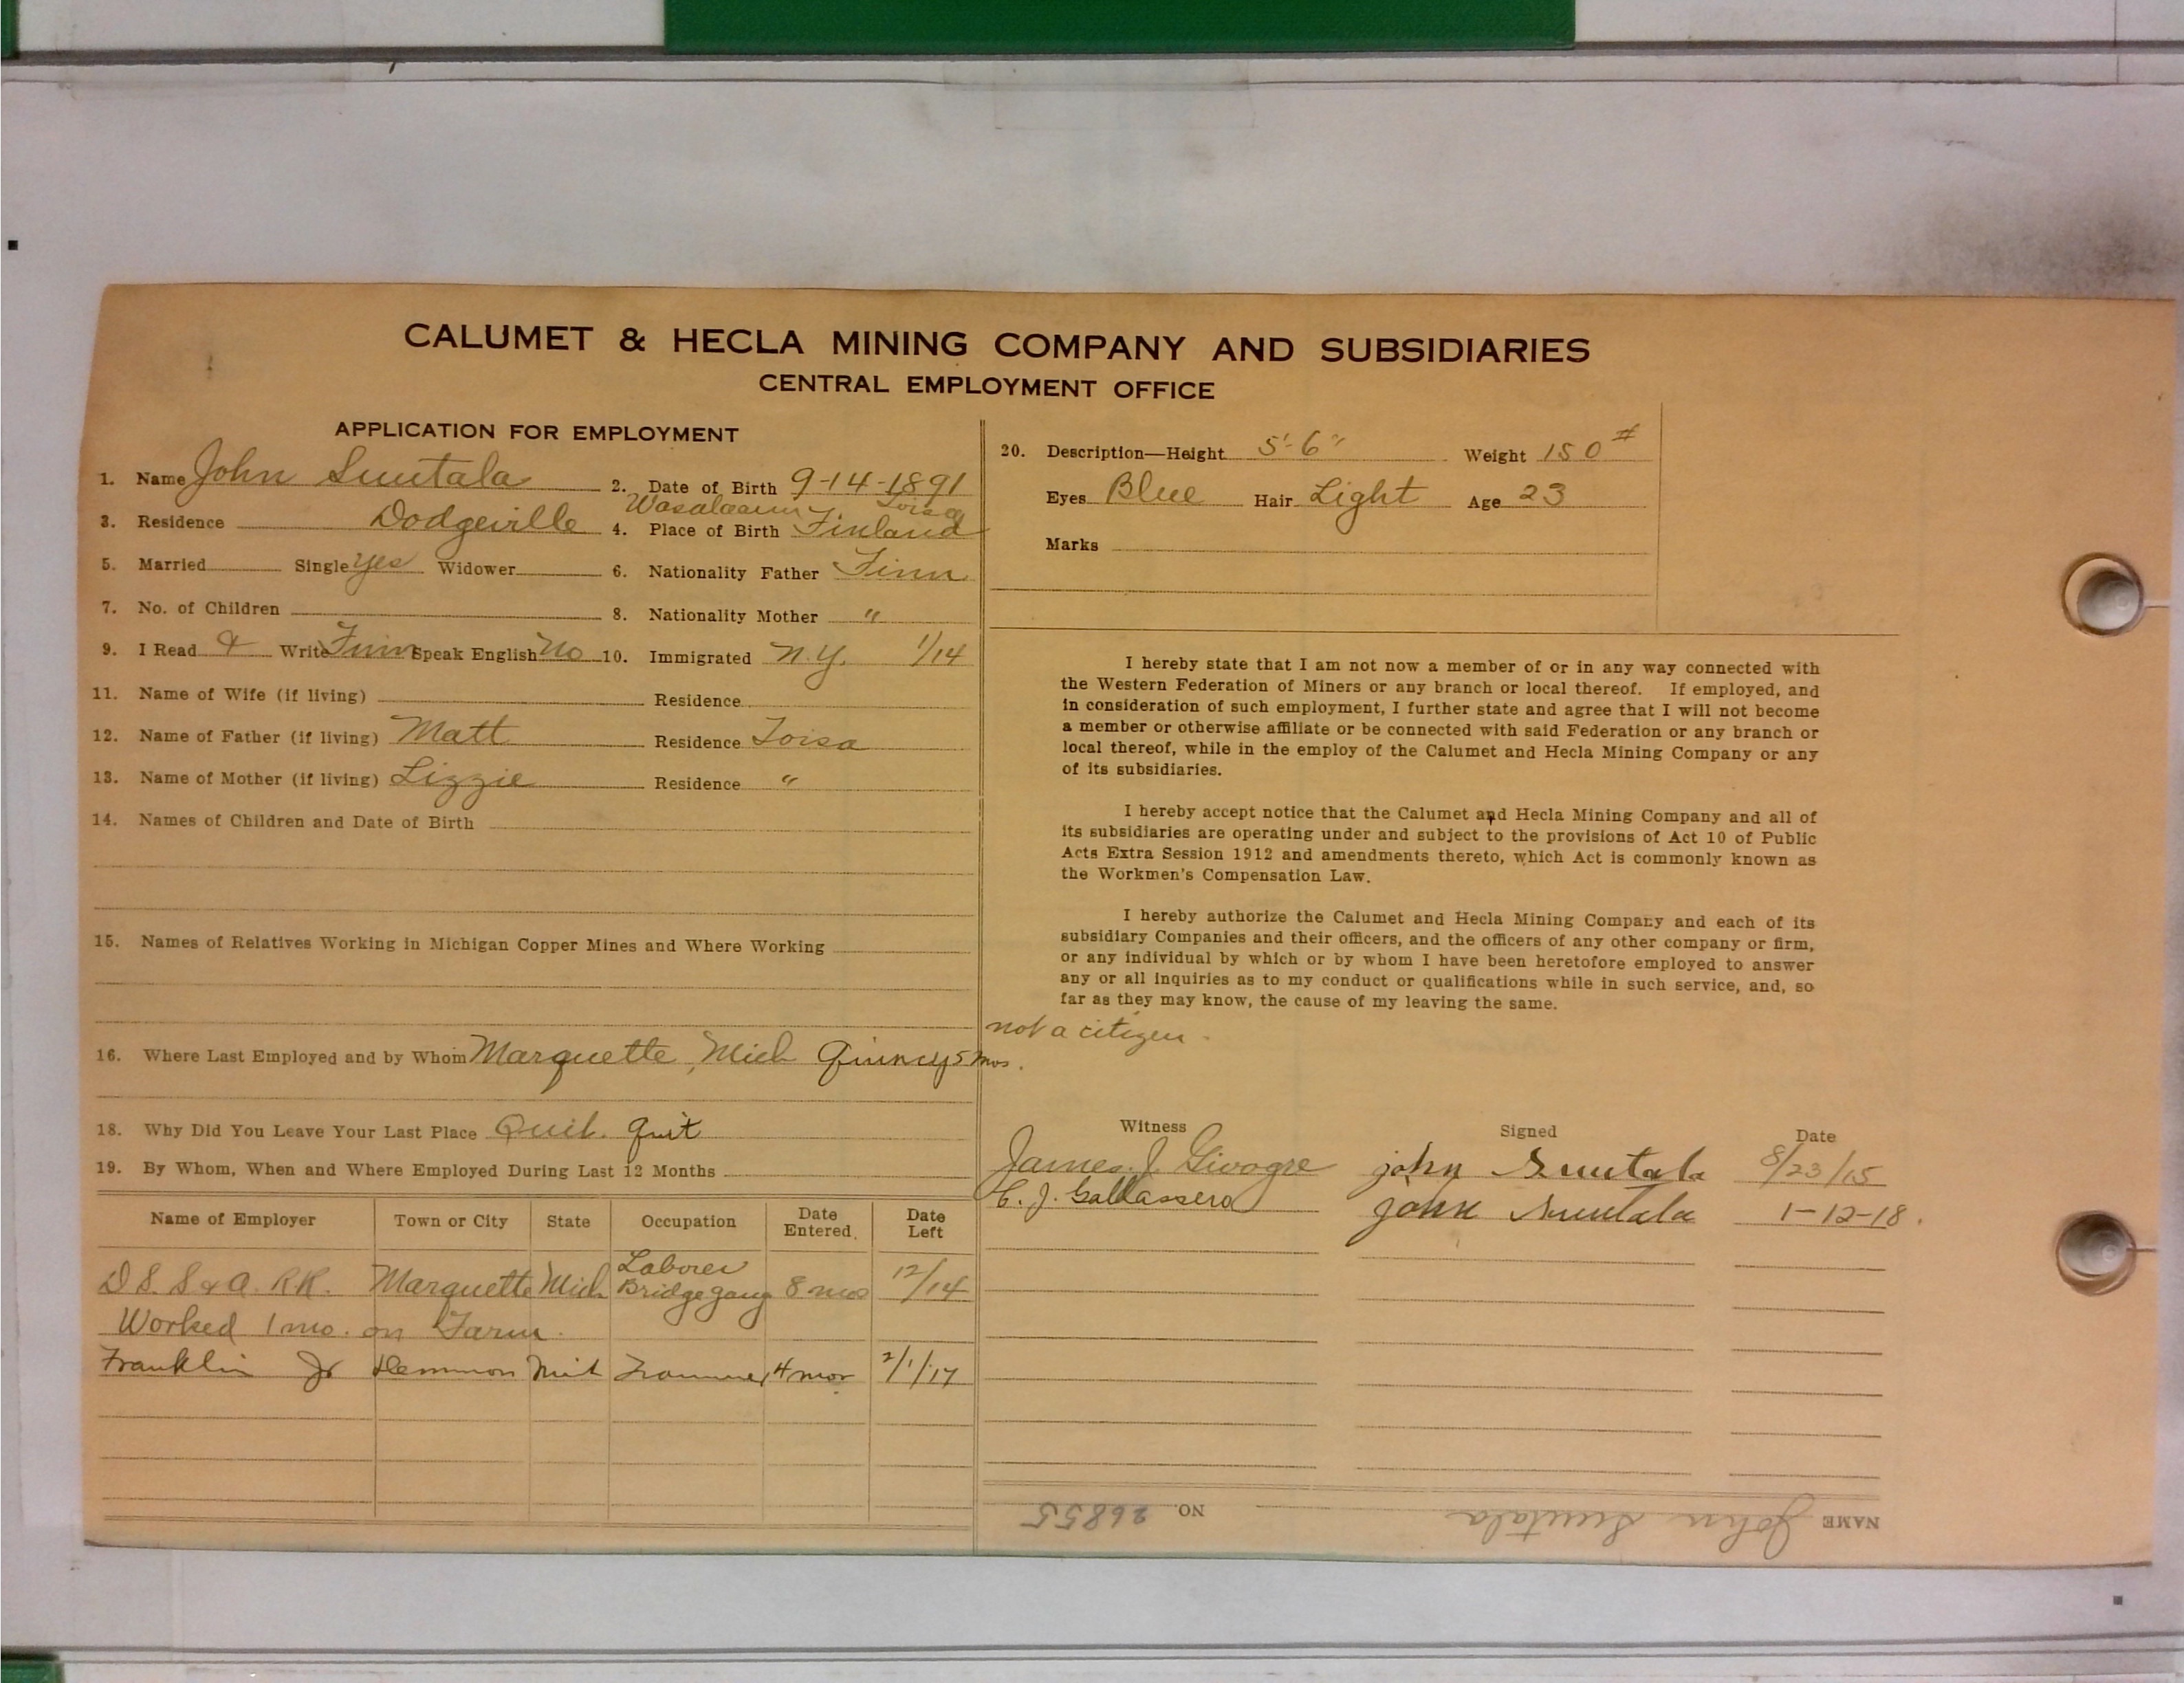 CALUMET & HECLA MINING COMPANY AND SUBSIDIARIES
CENTRAL EMPLOYMENT OFFICE
APPLICATION FOR EMPLOYMENT
1. Name John Suutala 2. Date of Birth 9-14-1891
3. Residence Dodgeville 4. Place of Birth Finland
5. Married Single yes Widower 6. Nationality Father Finn
7. No. of Children 8. Nationality Mother "
9. I Read & Write Finn Speak English No 10. Immigrated N.Y. 1/14
11. Name of Wife (if living) Residence
12. Name of Father (if living) Matt Residence Toisa
13. Name of Mother (if living) Lizzie Residence "
14. Names of Children and Date of Birth
15. Names of Relatives Working in Michigan Copper Mines and Where Working
16. Where Last Employed and by Whom Marquette, Mich Quincy 5 mos.
18. Why Did You Leave Your Last Place Quit. Quit
19. By Whom, When and Where Employed During Last 12 Months
Name of Employer Town or City State Occupation Date Entered Date Left
D S. S & A. R.R. Marquette Mich Laborer Bridge gang 8 mos 12/14
Worked 1 mo. on Farm.
Franklin Jr Trammer 4 mos 2/1/17
20. Description—Height 5'-6" Weight 150 #
Eyes Blue Hair Light Age 23
Marks
I hereby state that I am not now a member of or in any way connected with
the Western Federation of Miners or any branch or local thereof. If employed, and
in consideration of such employment, I further state and agree that I will not become
a member or otherwise affiliate or be connected with said Federation or any branch or
local thereof, while in the employ of the Calumet and Hecla Mining Company or any
of its subsidiaries.
I hereby accept notice that the Calumet and Hecla Mining Company and all of
its subsidiaries are operating under and subject to the provisions of Act 10 of Public
Acts Extra Session 1912 and amendments thereto, which Act is commonly known as
the Workmen's Compensation Law.
I hereby authorize the Calumet and Hecla Mining Company and each of its
subsidiary Companies and their officers, and the officers of any other company or firm,
or any individual by which or by whom I have been heretofore employed to answer
any or all inquiries as to my conduct or qualifications while in such service, and, so
far as they may know, the cause of my leaving the same.
not a citizen -
Witness Signed Date
James. J. john Suutala 8/23/15
C. J. john Suutala 1-12-18.
NAME John Suutala NO. 26855